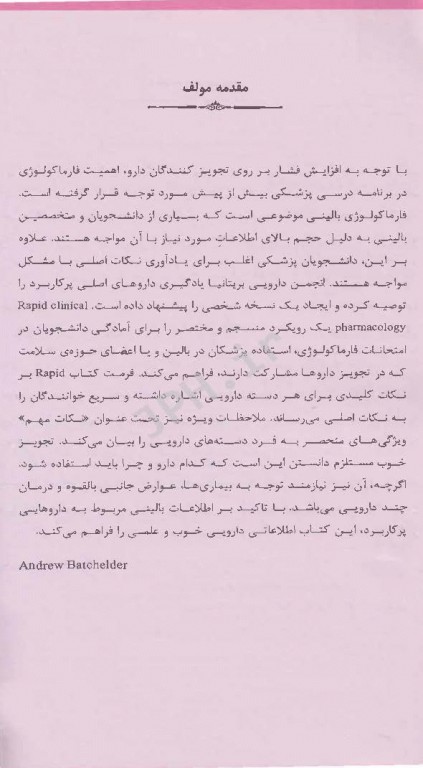 مقدمه مولف
با توجه به افزایش فشار بر روی تجویز کنندگان دارو، اهمیت فارماکولوژی
در برنامه درسی پزشکی بیش از پیش مورد توجه قرار گرفته است.
فارماکولوژی بالینی موضوعی است که بسیاری از دانشجویان و متخصصین
بالینی به دلیل حجم بالای اطلاعات مورد نیاز با آن مواجه هستند. علاوه
بر این، دانشجویان پزشکی اغلب برای یادآوری نکات اصلی با مشکل
مواجه هستند. انجمن دارویی بریتانیا یادگیری داروهای اصلی پرکاربرد را
توصیه کرده و ایجاد یک نسخه شخصی را پیشنهاد داده است. Rapid clinical
pharmacology یک رویکرد منسجم و مختصر را برای آمادگی دانشجویان در
امتحانات فارماکولوژی، استفاده پزشکان در بالین و یا اعضای حوزه‌ی سلامت
که در تجویز داروها مشارکت دارند، فراهم می‌کند. فرمت کتاب Rapid بر
نکات کلیدی برای هر دسته دارویی اشاره داشته و سریع خوانندگان را
به نکات اصلی می‌رساند. ملاحظات ویژه نیز تحت عنوان «نکات مهم»
ویژگی‌های منحصر به فرد دسته‌های دارویی را بیان می‌کنند. تجویز
خوب مستلزم دانستن این است که کدام دارو و چرا باید استفاده شود.
اگرچه، آن نیز نیازمند توجه به بیماری‌ها، عوارض جانبی بالقوه و درمان
چند دارویی می‌باشد. با تاکید بر اطلاعات بالینی مربوط به داروهایی
پرکاربرد، این کتاب اطلاعاتی دارویی خوب و علمی را فراهم می‌کند.
Andrew Batchelder
JPH.ir